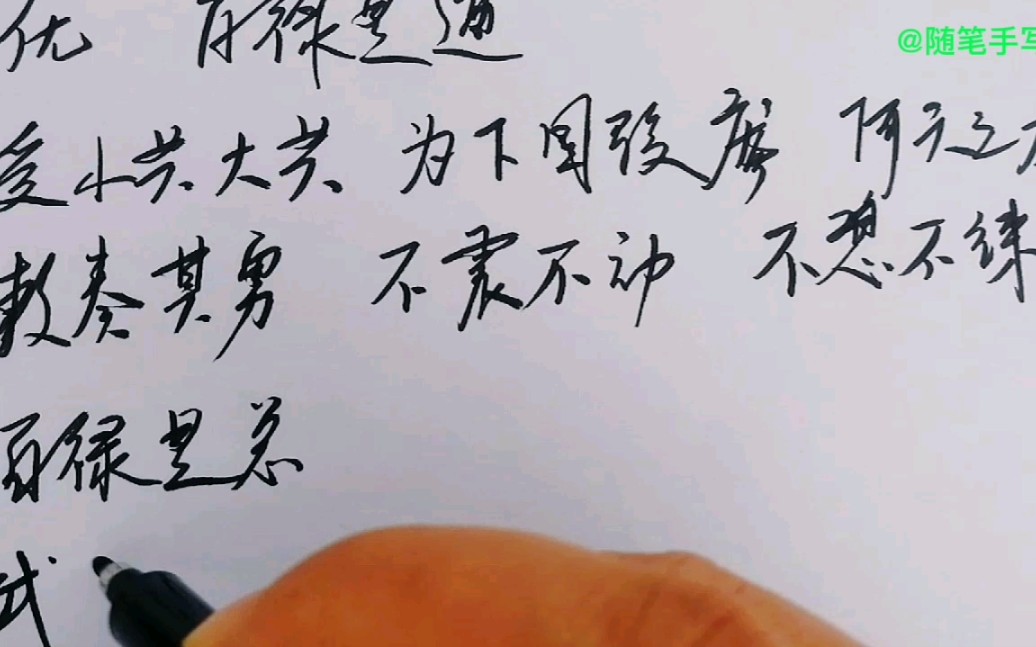 @随笔手写
优 百禄是遒
受小共大共 为下国骏厖 何天之
敷奏其勇 不震不动 不 不竦
百禄是总
武